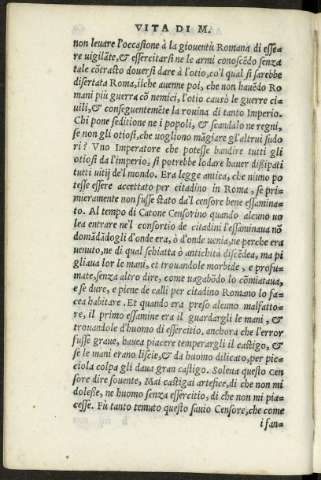 VITA DI M.
non leuare l'occasione à la giouentù Romana di esse=
re uigilāte, & essercitarsi ne le armi conoscēdo senza
tale cōtrasto douersi dare à l'otio, co'l qual si sarebbe
disertata Roma, ilche auenne poi, che non hauēdo Ro
mani più guerra cō nemici, l'otio causò le guerre ci=
uili, & conseguentemēte la rouina di tanto Imperio.
Chi pone seditione ne i popoli, & scandalo ne regni,
se non gli otiosi, che uogliono māgiare gl'altrui sudo
ri? Vno Imperatore che potesse bandire tutti gli
otiosi da l'imperio, si potrebbe lodare hauer dissipati
tutti uitij de'l mondo. Era legge antica, che niuno po
tesse essere accettato per citadino in Roma, se pri=
mieramente non fusse stato dal censore bene essamina=
to. Al tempo di Catone Censorino quando alcuno uo
lea entrare ne'l consortio de citadini l'essaminaua nō
domādādogli d'onde era, ò d'onde uenia, ne perche era
uenuto, ne di qual schiatta ò antichità discēdea, ma pi
gliaua lor le mani, et trouandole morbide, e profu=
mate, senza altro dire, come uagabōdo lo cōmiataua,
e se dure, e piene de calli per citadino Romano lo fa=
cea habitare. Et quando era preso alcuno malfatto=
re, il primo essamine era il guardargli le mani, &
trouandole d'huomo di essercitio, anchora che l'error
fusse graue, hauea piacere temperargli il castigo, &
se le mani erano liscie, & da huomo dilicato, per pic=
ciola colpa gli daua gran castigo. Solena questo Cen
sore dire souente, Mai castigai artefice, di che non mi
dolesse, ne huomo senza essercitio, di che non mi pia=
cesse. Fù tanto temuto questo sauio Censore, che come
i fan=